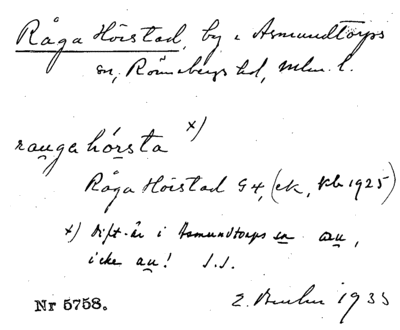 Råga Hörstad, by i Asmundtorps
sn, Rönnebergs hd, Mlm. l.
raugahórsta x)
Råga Hörstad G4, (ek, kb 1925)
x) Dift. är i Asmundtorps sn au,
icke au! S.S.
Nr 5758.
2. 1933